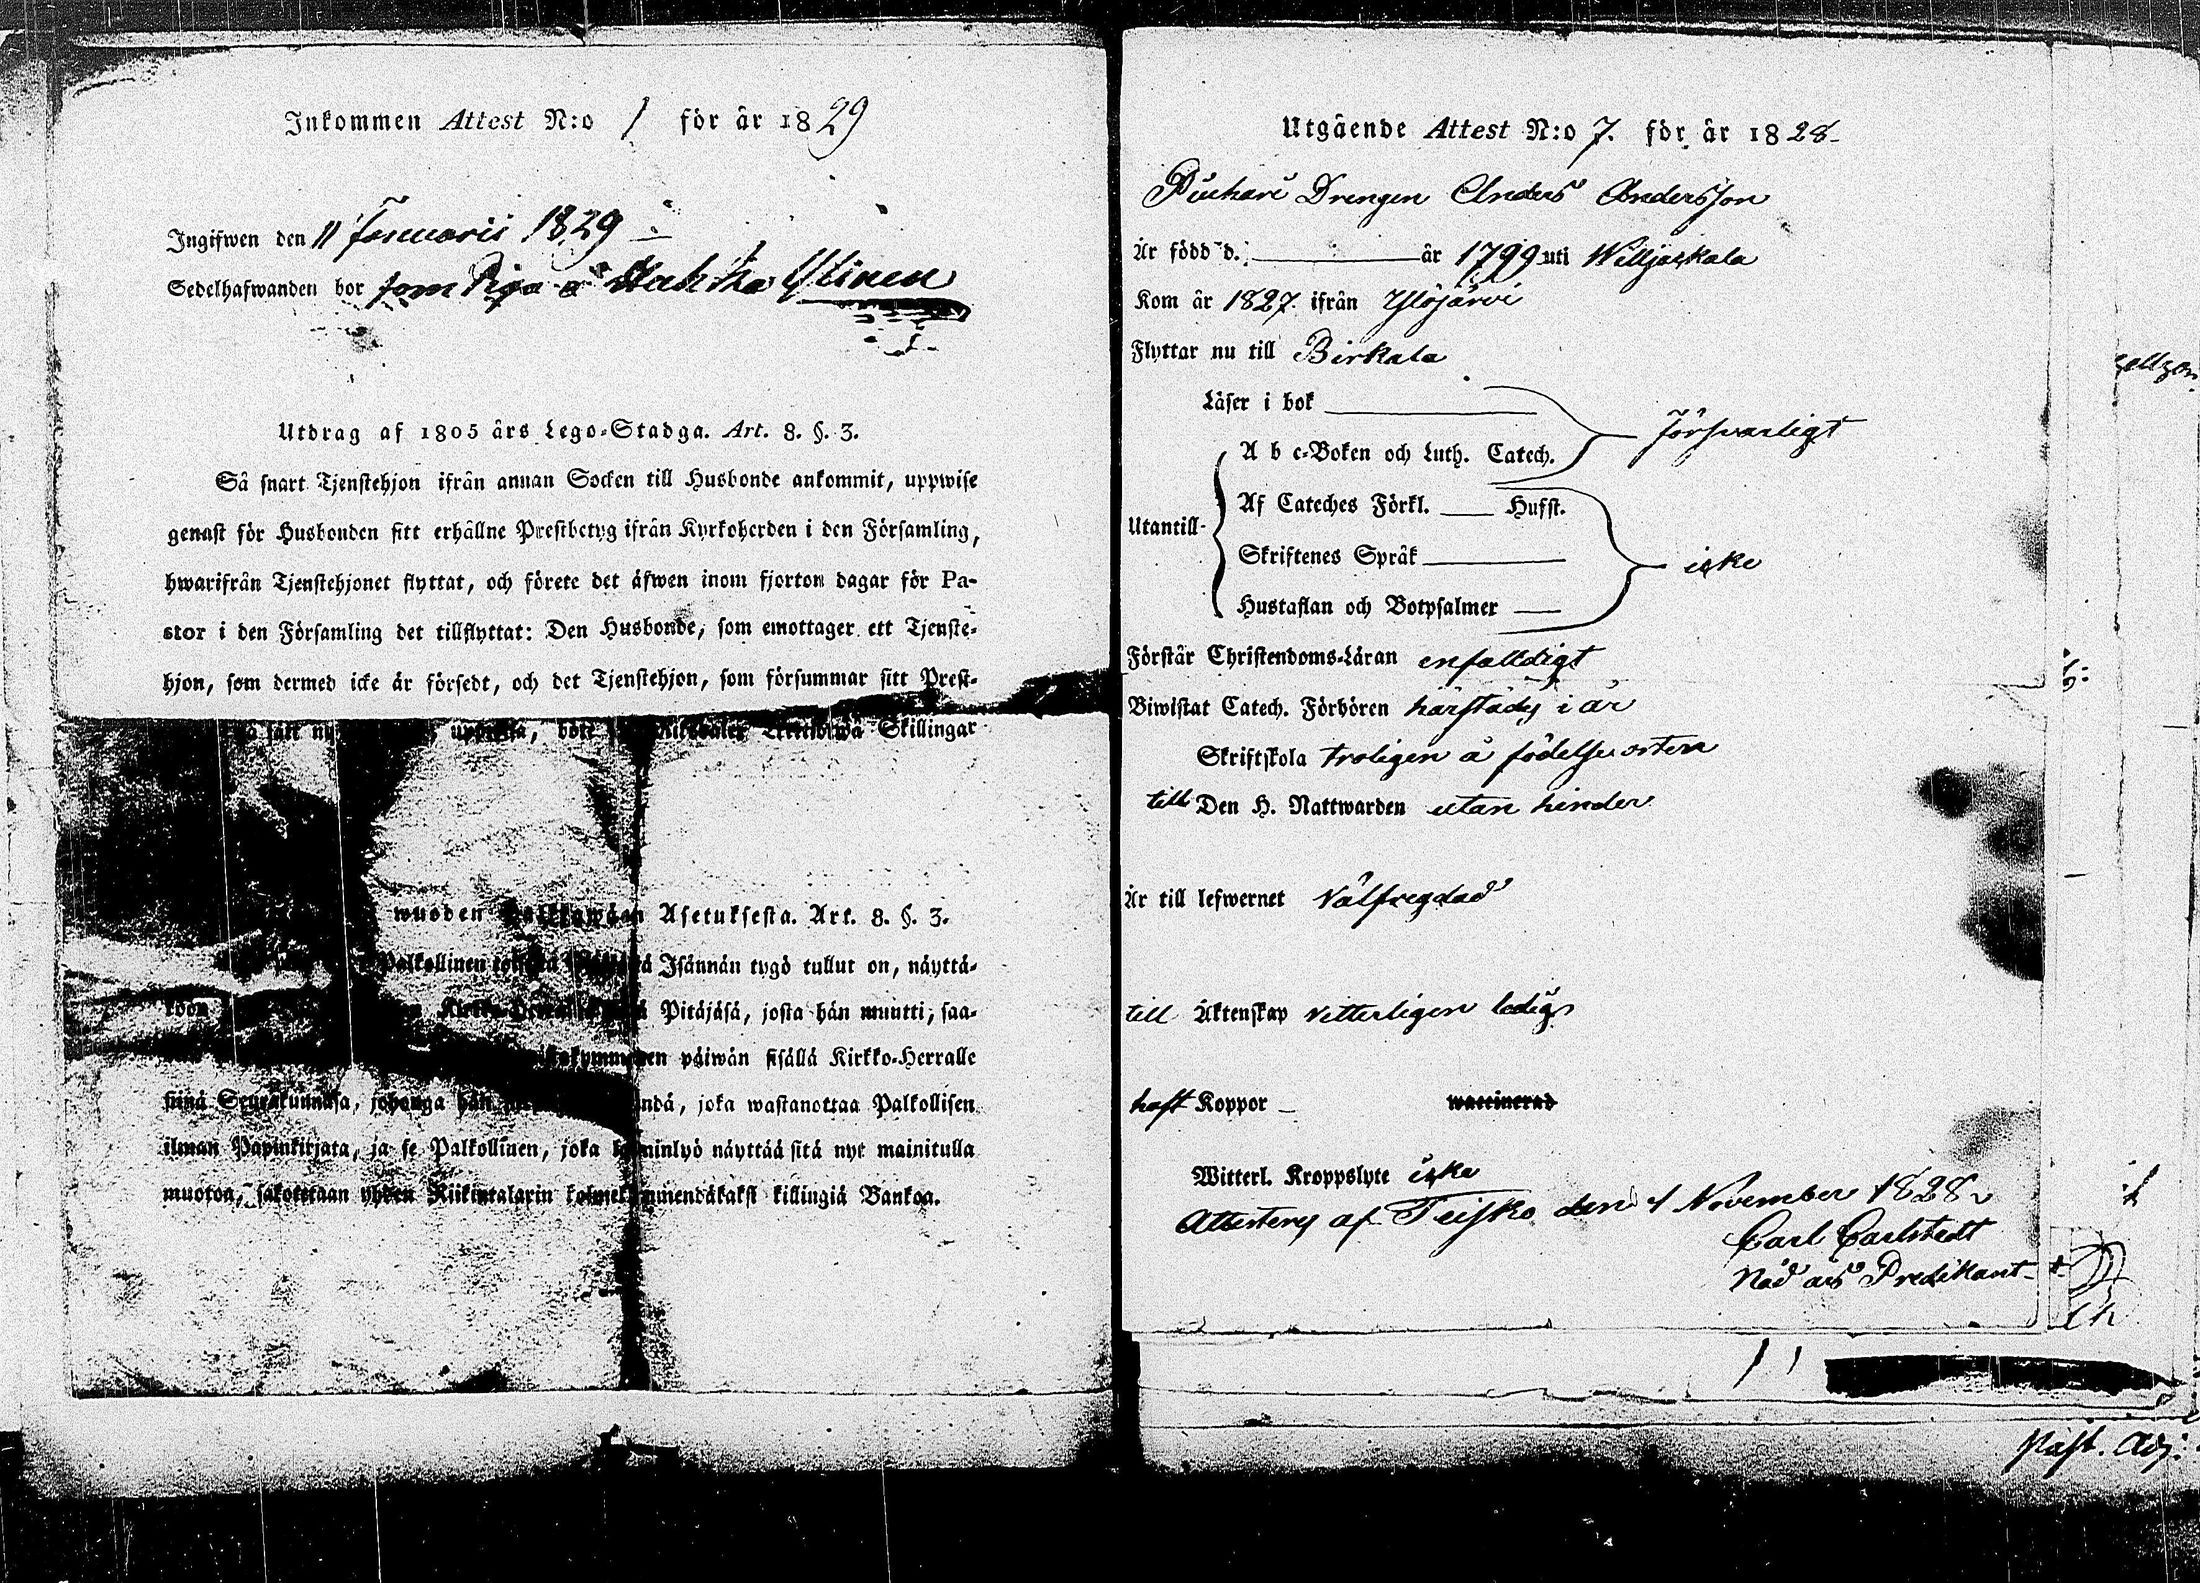 Inkommen Attest N:o 1 för år 1829
Ingifwen den 11 Januarii 1829
Sedelhafwanden bor som Piga å Ylinen
Utdrag af 1805 års Lego-Stadga. Art. 8. §. 3.
Så snart Tjenstehjon ifrån annan Socken till Husbonde ankommit, uppwise
genast för Husbonden sitt erhållne Prestbetyg ifrån Kyrkoherden i den Församling,
hwarifrån Tjenstehjonet flyttat, och förete det äfwen inom fjorton dagar för Pa-
stor i den Församling det tillflyttat: Den Husbonde, som emottager ett Tjenste-
hjon, som dermed icke är försedt, och det Tjenstehjon, som försummar sitt Prest-
Skillingar
wuoden Palkkawäen Asetuksesta. Art. 8. §. 3.
Palkollinen Isännän tygö tullut on, näyttä-
Pitäjäsä, josta hän muutti, saa-
päiwän sisällä Kirkko-Herralle
siinä Seurakunnasa, johonga hän joka wastanottaa Palkollisen
ilman Papinkirjata, ja se Palkollinen, joka laiminlyö näyttää sitä nyt mainitulla
muotoa, sakotetaan yhden Riikintalarin kolmekymmendäkaksi killingiä Bankoa.
Utgående Attest N:o 7. för år 1828
Drengen Anders Andersson
År född d. år 1799 uti Willjaskala
Kom år 1827. ifrån Ylöjärvi
Flyttar nu till Birkala
Läser i bok
A b c-Boken och Luth. Catech.
försvarligt
Utantill
Af Cateches Förkl. Husst.
Skriftenes Språk
Hustaflan och Botpsalmer
icke
Förstår Christendoms-Läran enfaldigt
Biwistat Catech. Förhören härstädes i år
Skriftskola troligen å födelse orten
till Den H. Nattwarden utan hinder
Är till lefwernet välfregdad
till Äktenskap vetterligen ledig
haft Koppor waccinerad
Witterl. Kroppslyte icke
Attesteras af Teisko den 4 November 1828
Carl Carlstedt
Nåd års Predikant
Past. Adj.